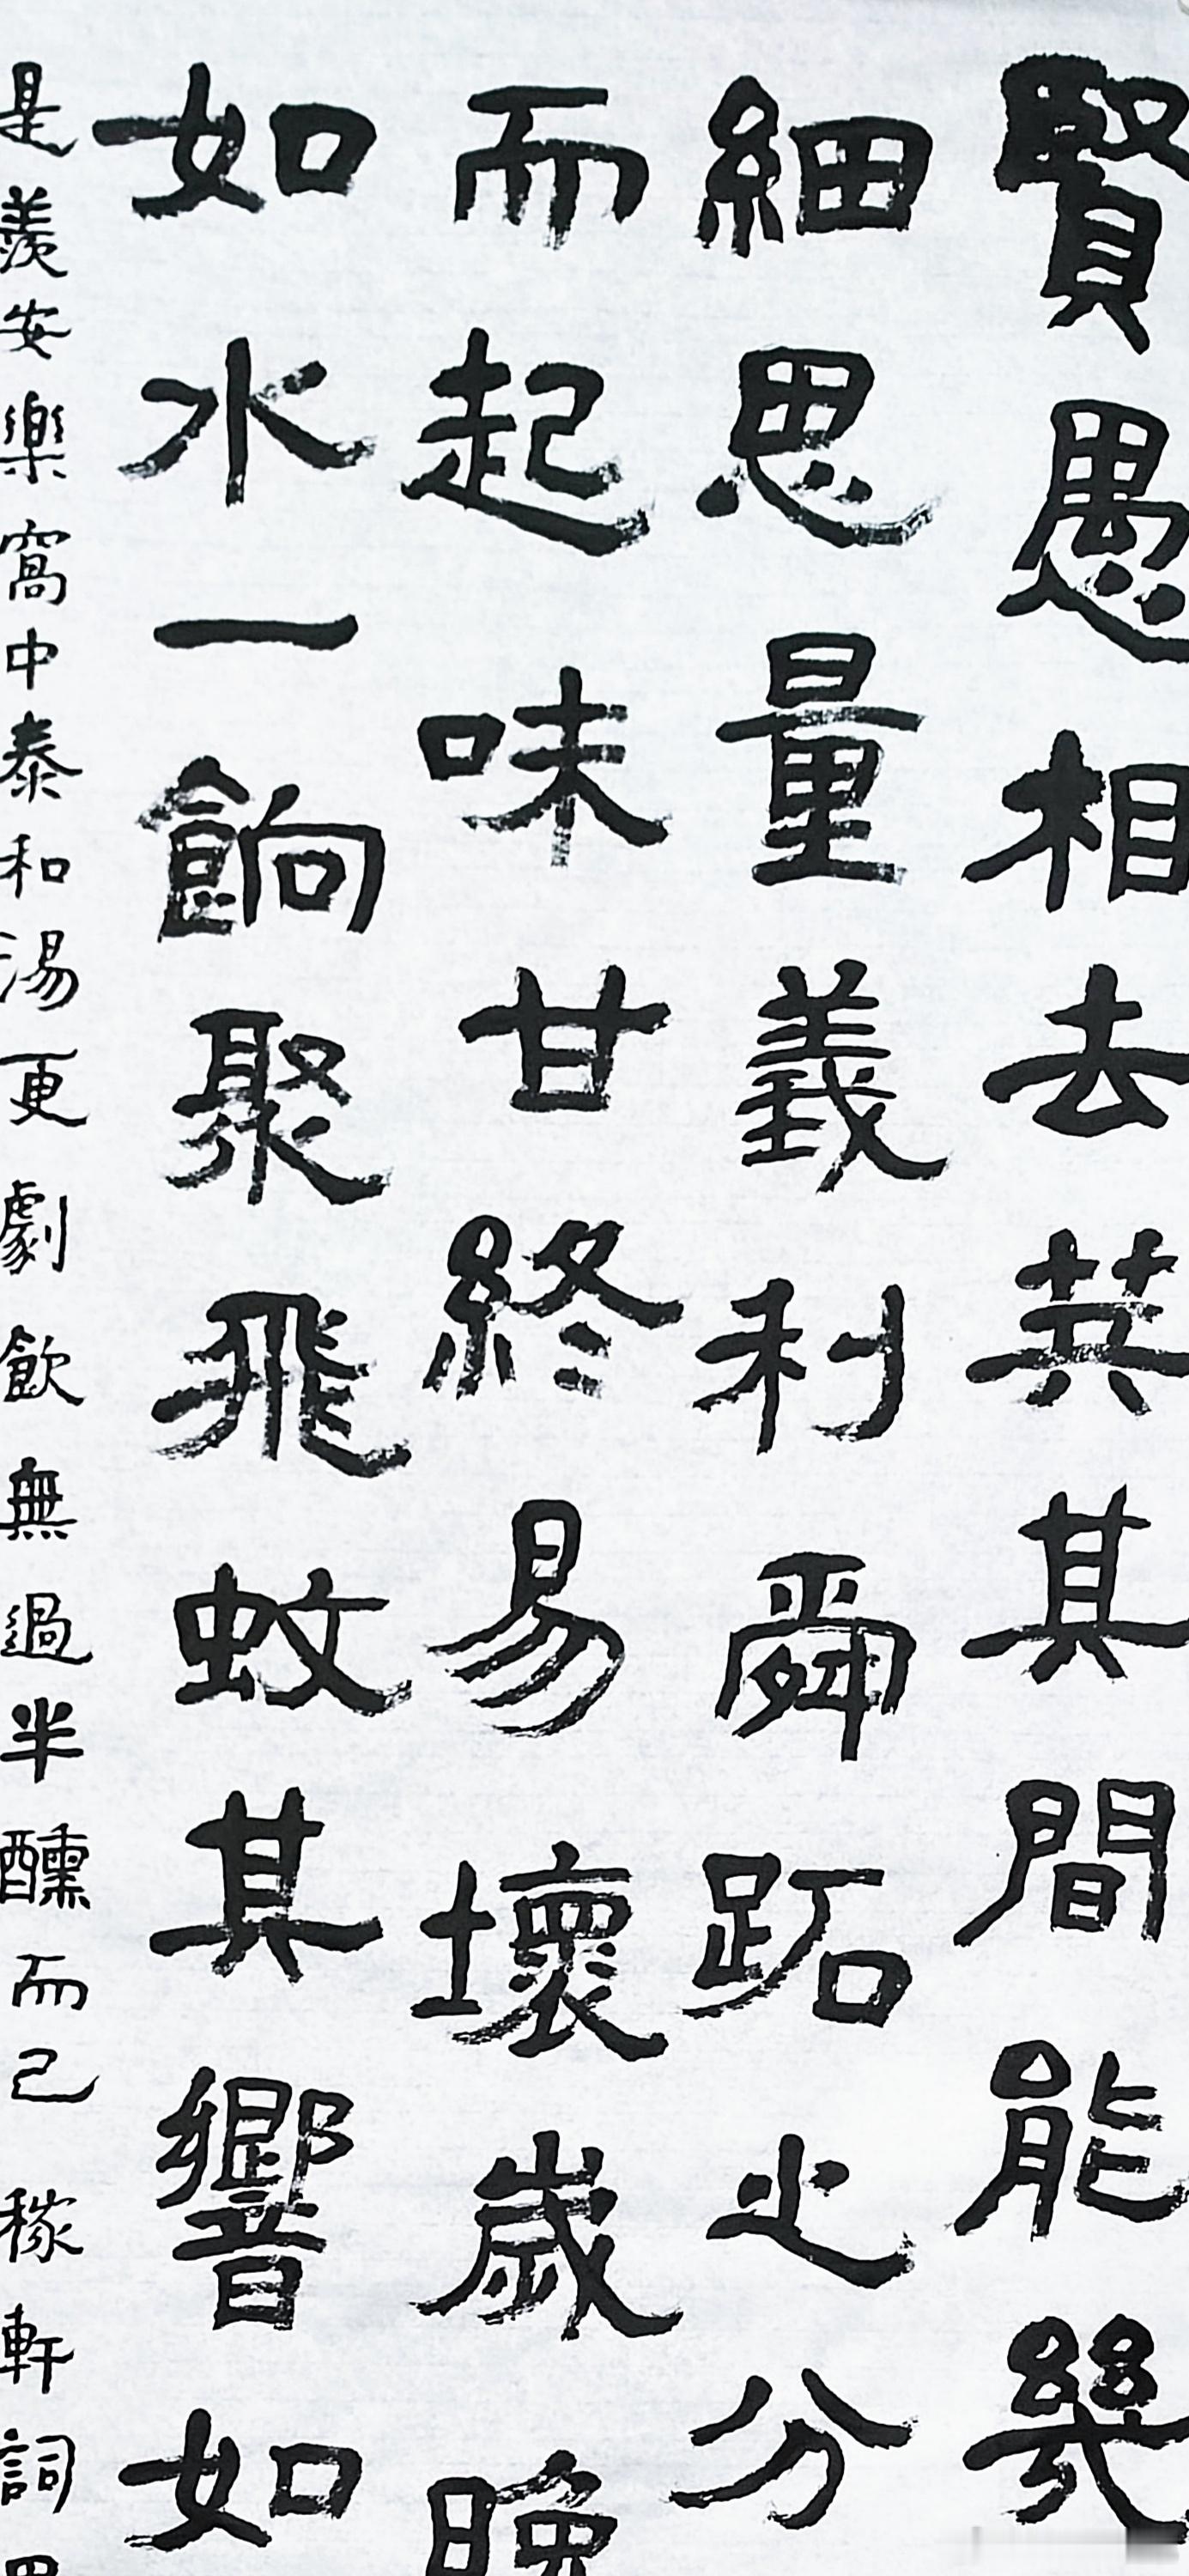 賢愚相去其其間能幾
細思量義利舜跖之分
而起味甘終易壞歲晚
如水一餉聚飛蚊其響如
是羨安樂窩中泰和湯更劇飲無過半醺而已稼軒詞